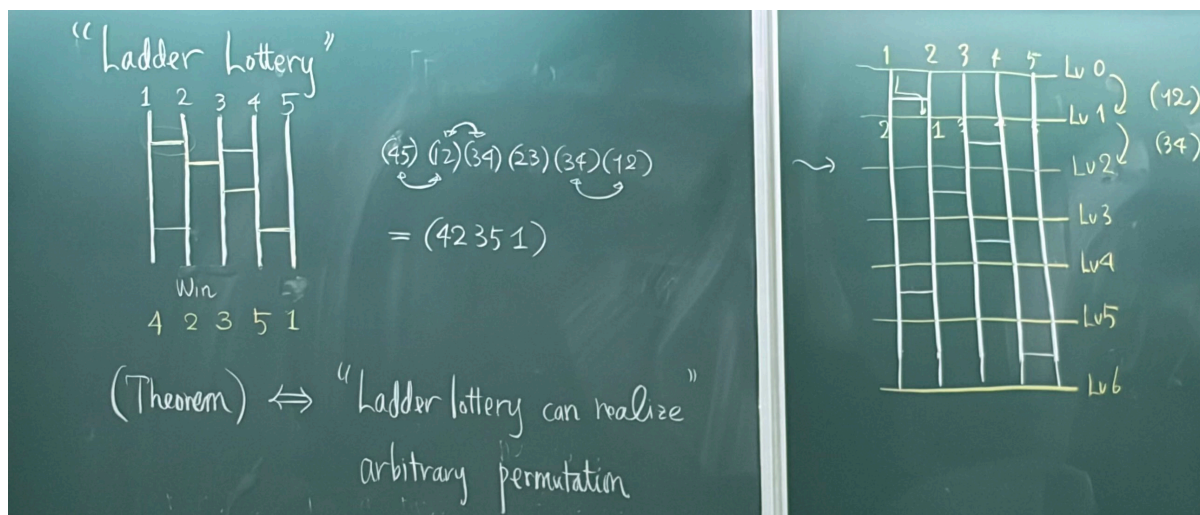 "Ladder Lottery"
1 2 3 4 5
Win
4 2 3 5 1
(45)(12)(34)(23)(34)(12)
= (42351)
(Theorem) ⇔ "Ladder lottery can realize"
arbitrary permutation
1 2 3 4 5
Lv 0
Lv 1
(12)
2 1 3 4
Lv 2
(34)
Lv 3
Lv 4
Lv 5
Lv 6